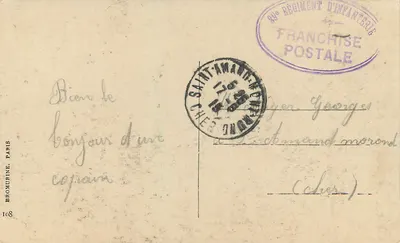 RÉGIMENT D'INFANTERIE
FRANCHISE
POSTALE
SAINT-AMAND-MONT-ROND
CHER
Bien le
bonjour d'une
copine
Georges
St Amand morond
(cher)
BERGERINE, PARIS
108